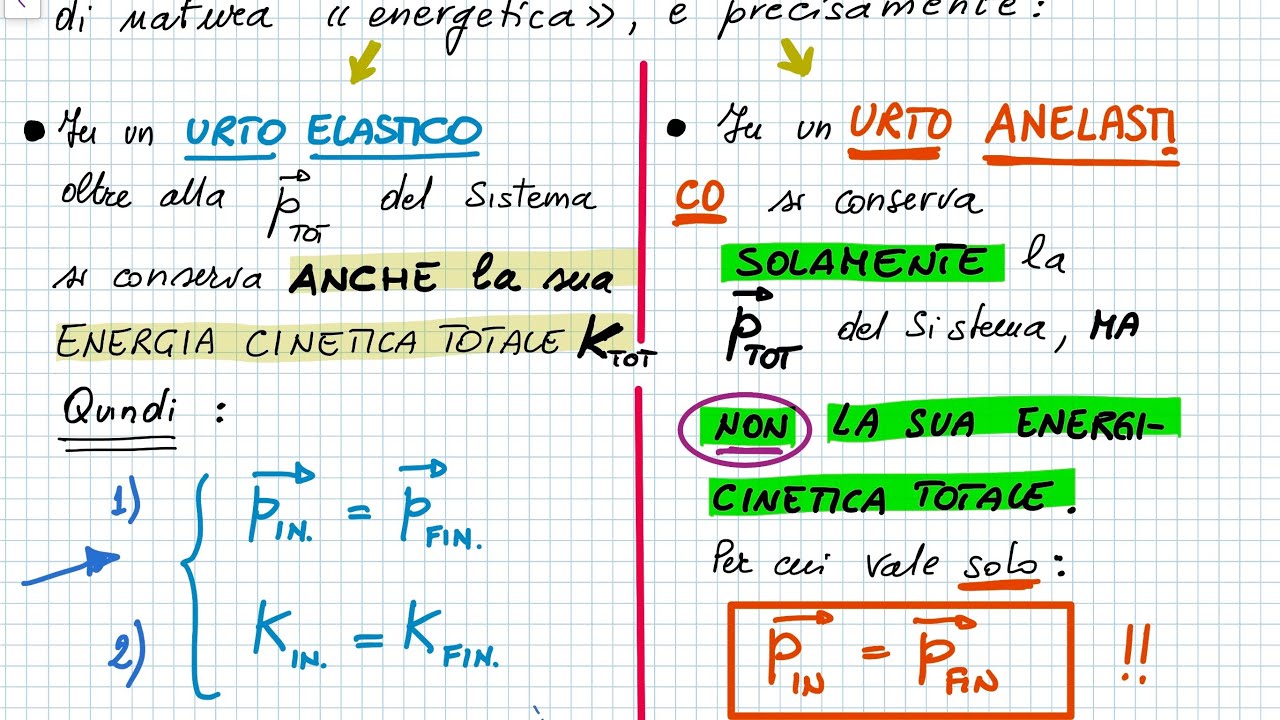 di natura «energetica», e precisamente:
• In un URTO ELASTICO
oltre alla p TOT del sistema
si conserva ANCHE la sua
ENERGIA CINETICA TOTALE K TOT
Qundi :
1) p IN. = p FIN.
2) K IN. = K FIN.
• In un URTO ANELASTI
CO si conserva
SOLAMENTE la
p TOT del sistema, MA
NON LA SUA ENERGI-
CINETICA TOTALE.
Per cui vale solo:
p IN = p FIN !!